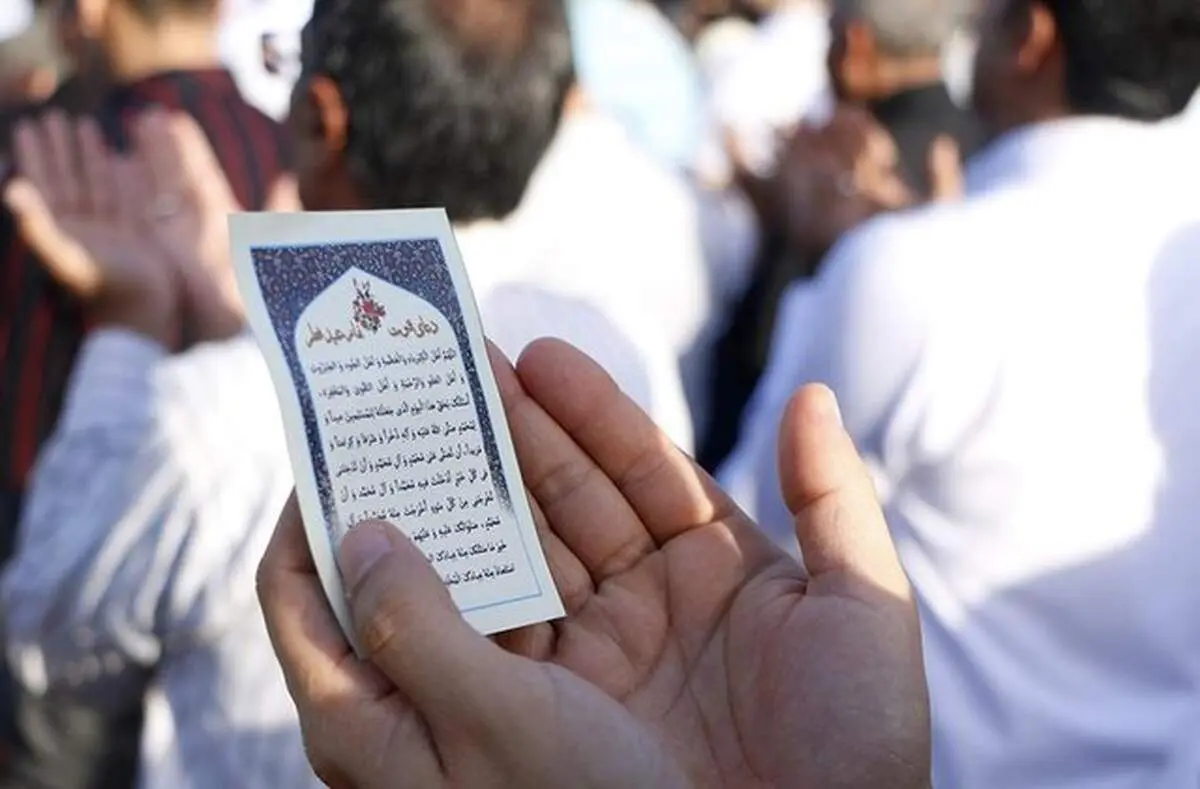 دعای قنوت نماز عید فطر
اَللّهُمَّ اَهْلَ الْكِبْرِياءِ وَالْعَظَمَةِ وَ اَهْلَ الْجُودِ وَ الْجَبَرُوتِ
وَ اَهْلَ الْعَفْوِ وَالرَّحْمَةِ وَ اَهْلَ التَّقْوى وَالْمَغْفِرَةِ،
اَسْئَلُكَ بِحَقِّ هذَا الْيَوْمِ الَّذى جَعَلْتَهُ لِلْمُسْلِمينَ عيداً وَ
لِمُحَمَّدٍ صَلَّى اللهُ عَلَيْهِ وَ آلِهِ ذُخْراً وَ شَرَفاً وَ كَرامَتاً وَ
مَزيداً، اَنْ تُصَلِّىَ عَلى مُحَمَّدٍ وَ آلِ مُحَمَّدٍ وَ اَنْ تُدْخِلَنى
فى كُلِّ خَيْرٍ اَدْخَلْتَ فيهِ مُحَمَّداً وَ آلَ مُحَمَّدٍ، وَ اَنْ
تُخْرِجَنى مِنْ كُلِّ سُوءٍ اَخْرَجْتَ مِنْهُ مُحَمَّداً وَ آلَ
مُحَمَّدٍ، صَلَواتُكَ عَلَيْهِ وَ عَلَيْهِمْ
خَيْرَ ما سَئَلَكَ مِنْهُ عِبادُكَ
اسْتَعاذَ مِنْهُ عِبادُكَ